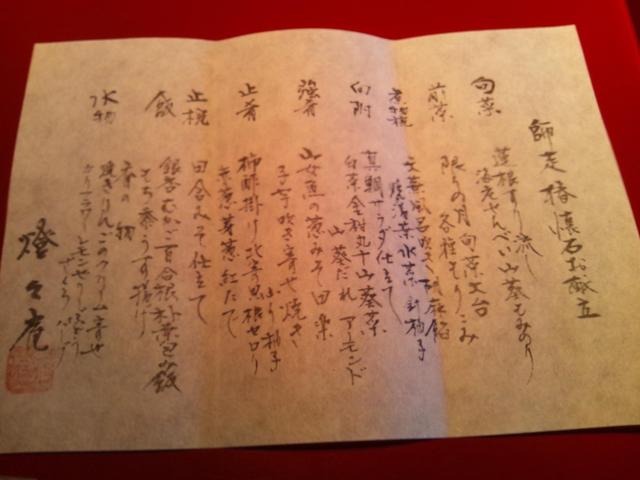 師走 椿懐石お献立
旬菜
蓮根すり流し
海老せんべい 山葵 もみのり
前菜
限りの月 旬菜大台
各種もりこみ
煮物椀
水菜 針柚子
向附
真鯛サラダ仕立て
白菜 金柑 丸十 山葵菜
山葵だれ アーモンド
強肴
山女魚の葱みそ田楽
子芋吹き寄せ焼き
ふり柚子
止肴
柿酢掛け 大根 セロリ
芽葱 紅たで
止椀
田舎みそ仕立て
飯
銀杏 むかご 百合根 朴葉包み飯
もち麦 うす揚げ
香の物
水物
焼きりんごのクリーム寄せ
カリフラワー レモンゼリー
ざくろ
燈々庵